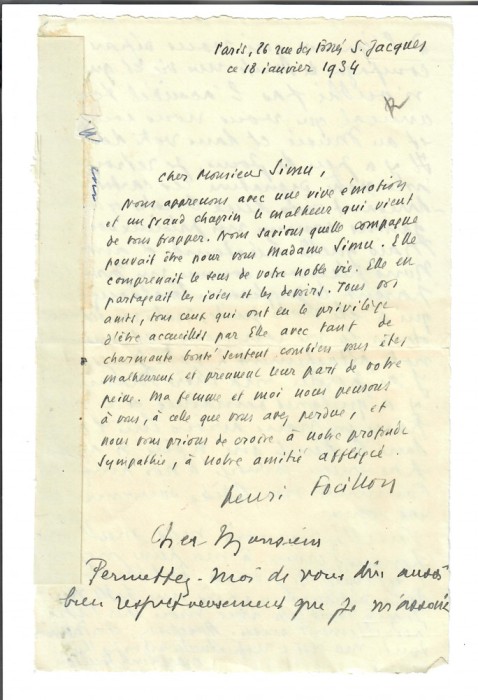 Paris, 26 rue des Fossés S. Jacques
ce 18 janvier 1934
Cher Monsieur Simu,
Nous apprenons avec une vive émotion
et un grand chagrin le malheur qui vient
de vous frapper. Nous savions quelle compagne
pouvait être pour vous Madame Simu. Elle
comprenait le sens de votre noble vie. Elle en
partageait les joies et les devoirs. Tous vos
amis, tous ceux qui ont eu le privilège
d'être accueillis par Elle avec tant de
charmante bonté sentent combien vous êtes
malheureux et prennent leur part de votre
peine. Ma femme et moi nous pensons
à vous, à celle que vous avez perdue, et
nous vous prions de croire à notre profonde
sympathie, à notre amitié affligée.
Henri Focillon
Cher Monsieur
Permettez-moi de vous dire aussi
bien respectueusement que je m'associe